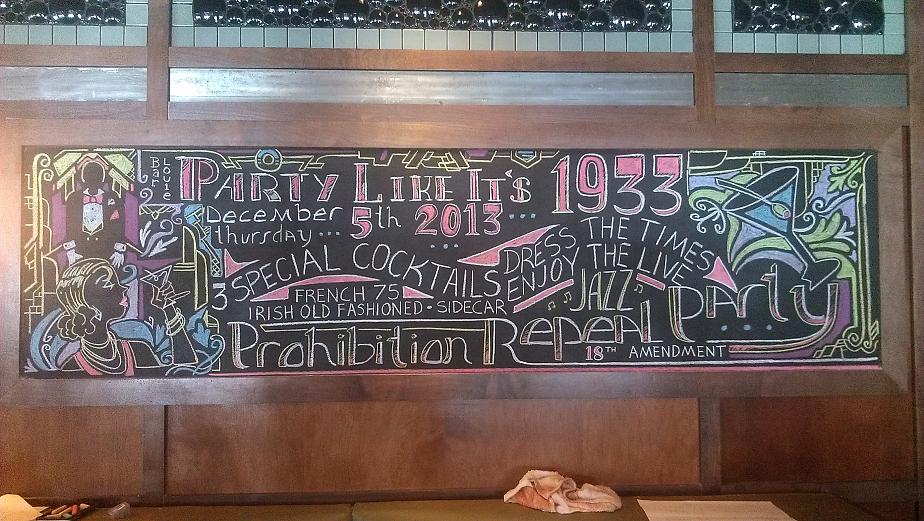 Bar Louie
PARTY LIKE IT'S 1933
December 5th 2013...
thursday...
3 SPECIAL COCKTAILS
FRENCH 75
IRISH OLD FASHIONED - SIDECAR
DRESS THE TIMES
ENJOY THE LIVE
JAZZ
Prohibition Repeal Party
18TH AMENDMENT